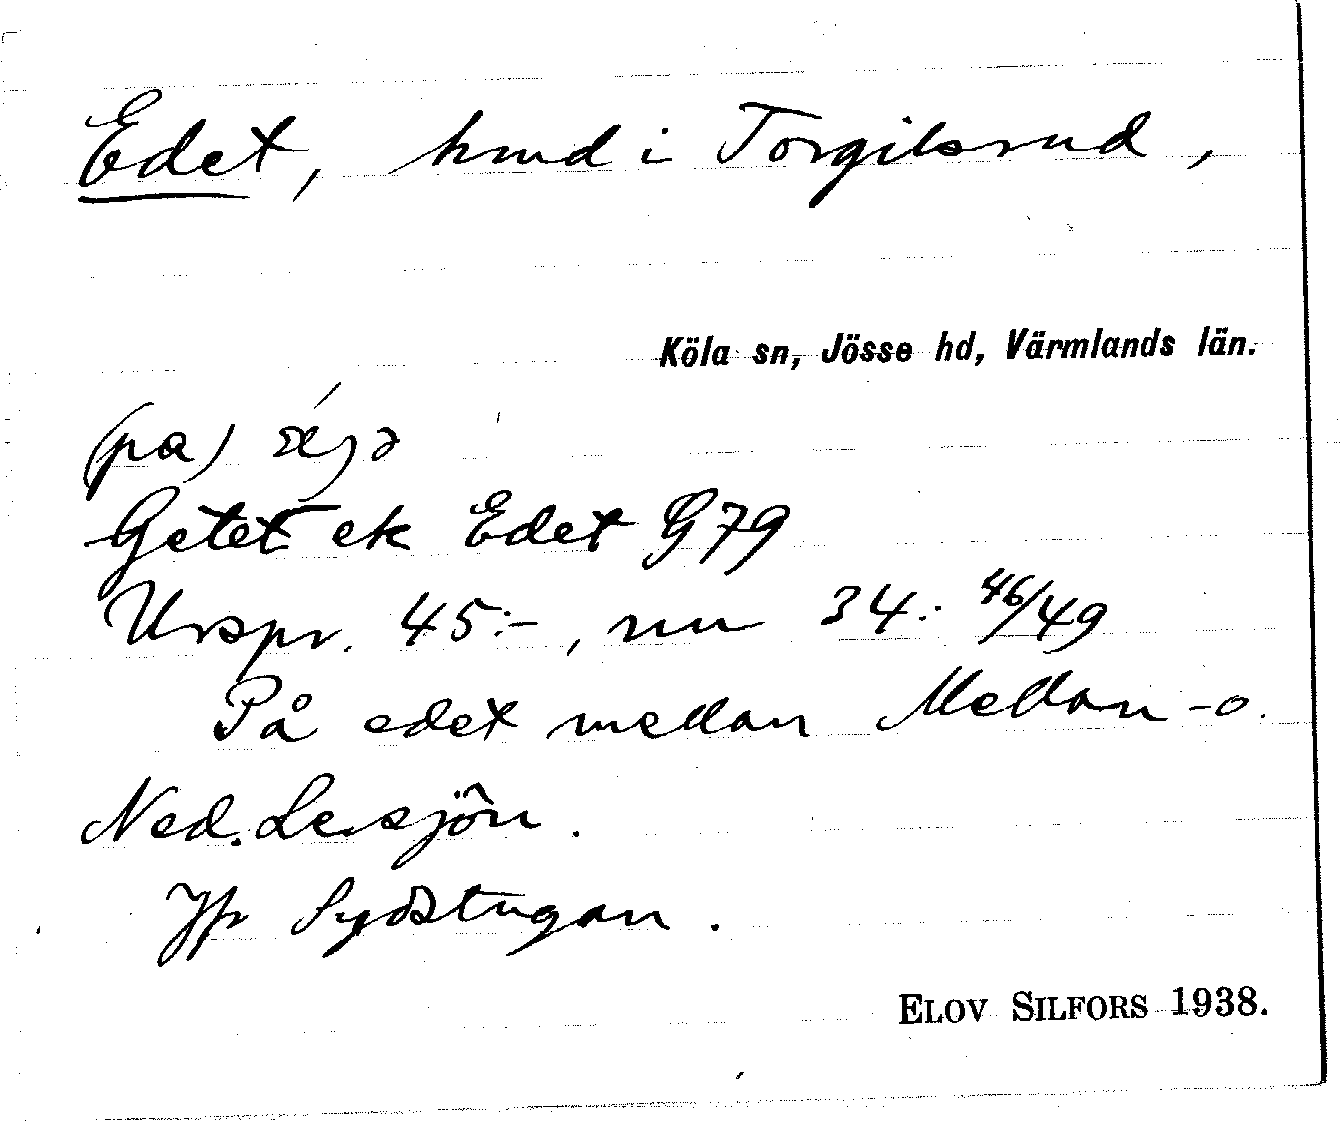 Edet, hmd i Torgilsrud,
Köla sn, Jösse hd, Värmlands län.
(pa)
Getet ek Edet G79
Urspr. 45:-, nu 34: 46/49
På edet mellan Mellan- o.
Ned. Lersjön.
Jfr Sydstugan.
ELOV SILFORS 1938.